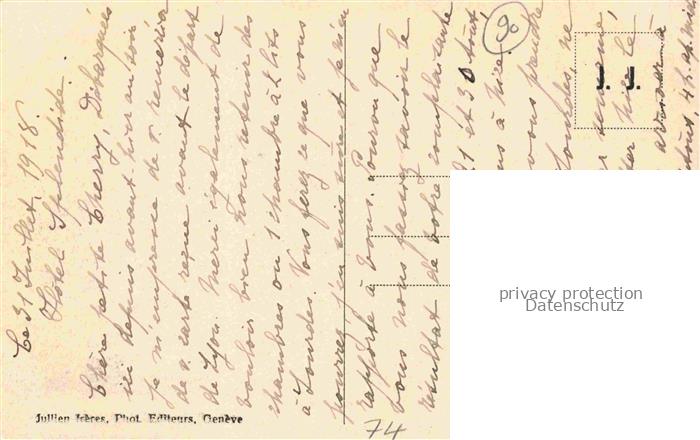 Le 31 Juillet, 1918.
Hôtel Splendide.
Chère petite Cherry, Débarqués
ici depuis avant-hier au soir
je m'empresse de v. remercier
de v. carte reçue avant le départ
de Lyon. Merci également de
vouloir bien nous retenir des
chambres ou 1 chambre à 2 lits
à Lourdes. Vous ferez ce que vous
pourrez j'en suis sûre et m'en
rapporte à vous. Pourvu que
vous nous fassiez savoir le
résultat de votre complaisante
21 et 30 tout
à
vous prendre
Lourdes, ne
semaine,
le
J. J.
90
74
Jullien frères, Phot. Editeurs, Genève
privacy protection
Datenschutz